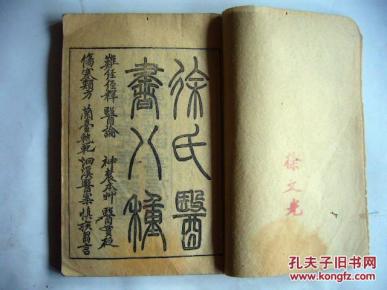 徐文光
徐氏醫
書八種
難經經釋 醫論 神農本艸 醫貫砭
傷寒類方 蘭臺軌範 洄溪醫案 慎疾芻言
孔夫子旧书网